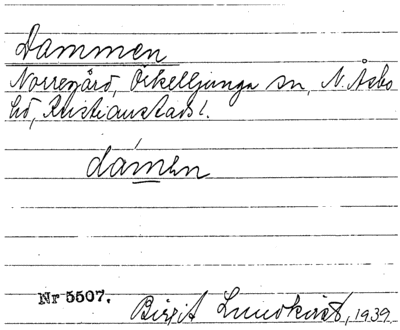 Dammen
Norregård, Örkelljunga sn, N. Åsbo
hd, Kristianstads l.
dámen
Nr 5507.
Birgit Lundkvist, 1939.